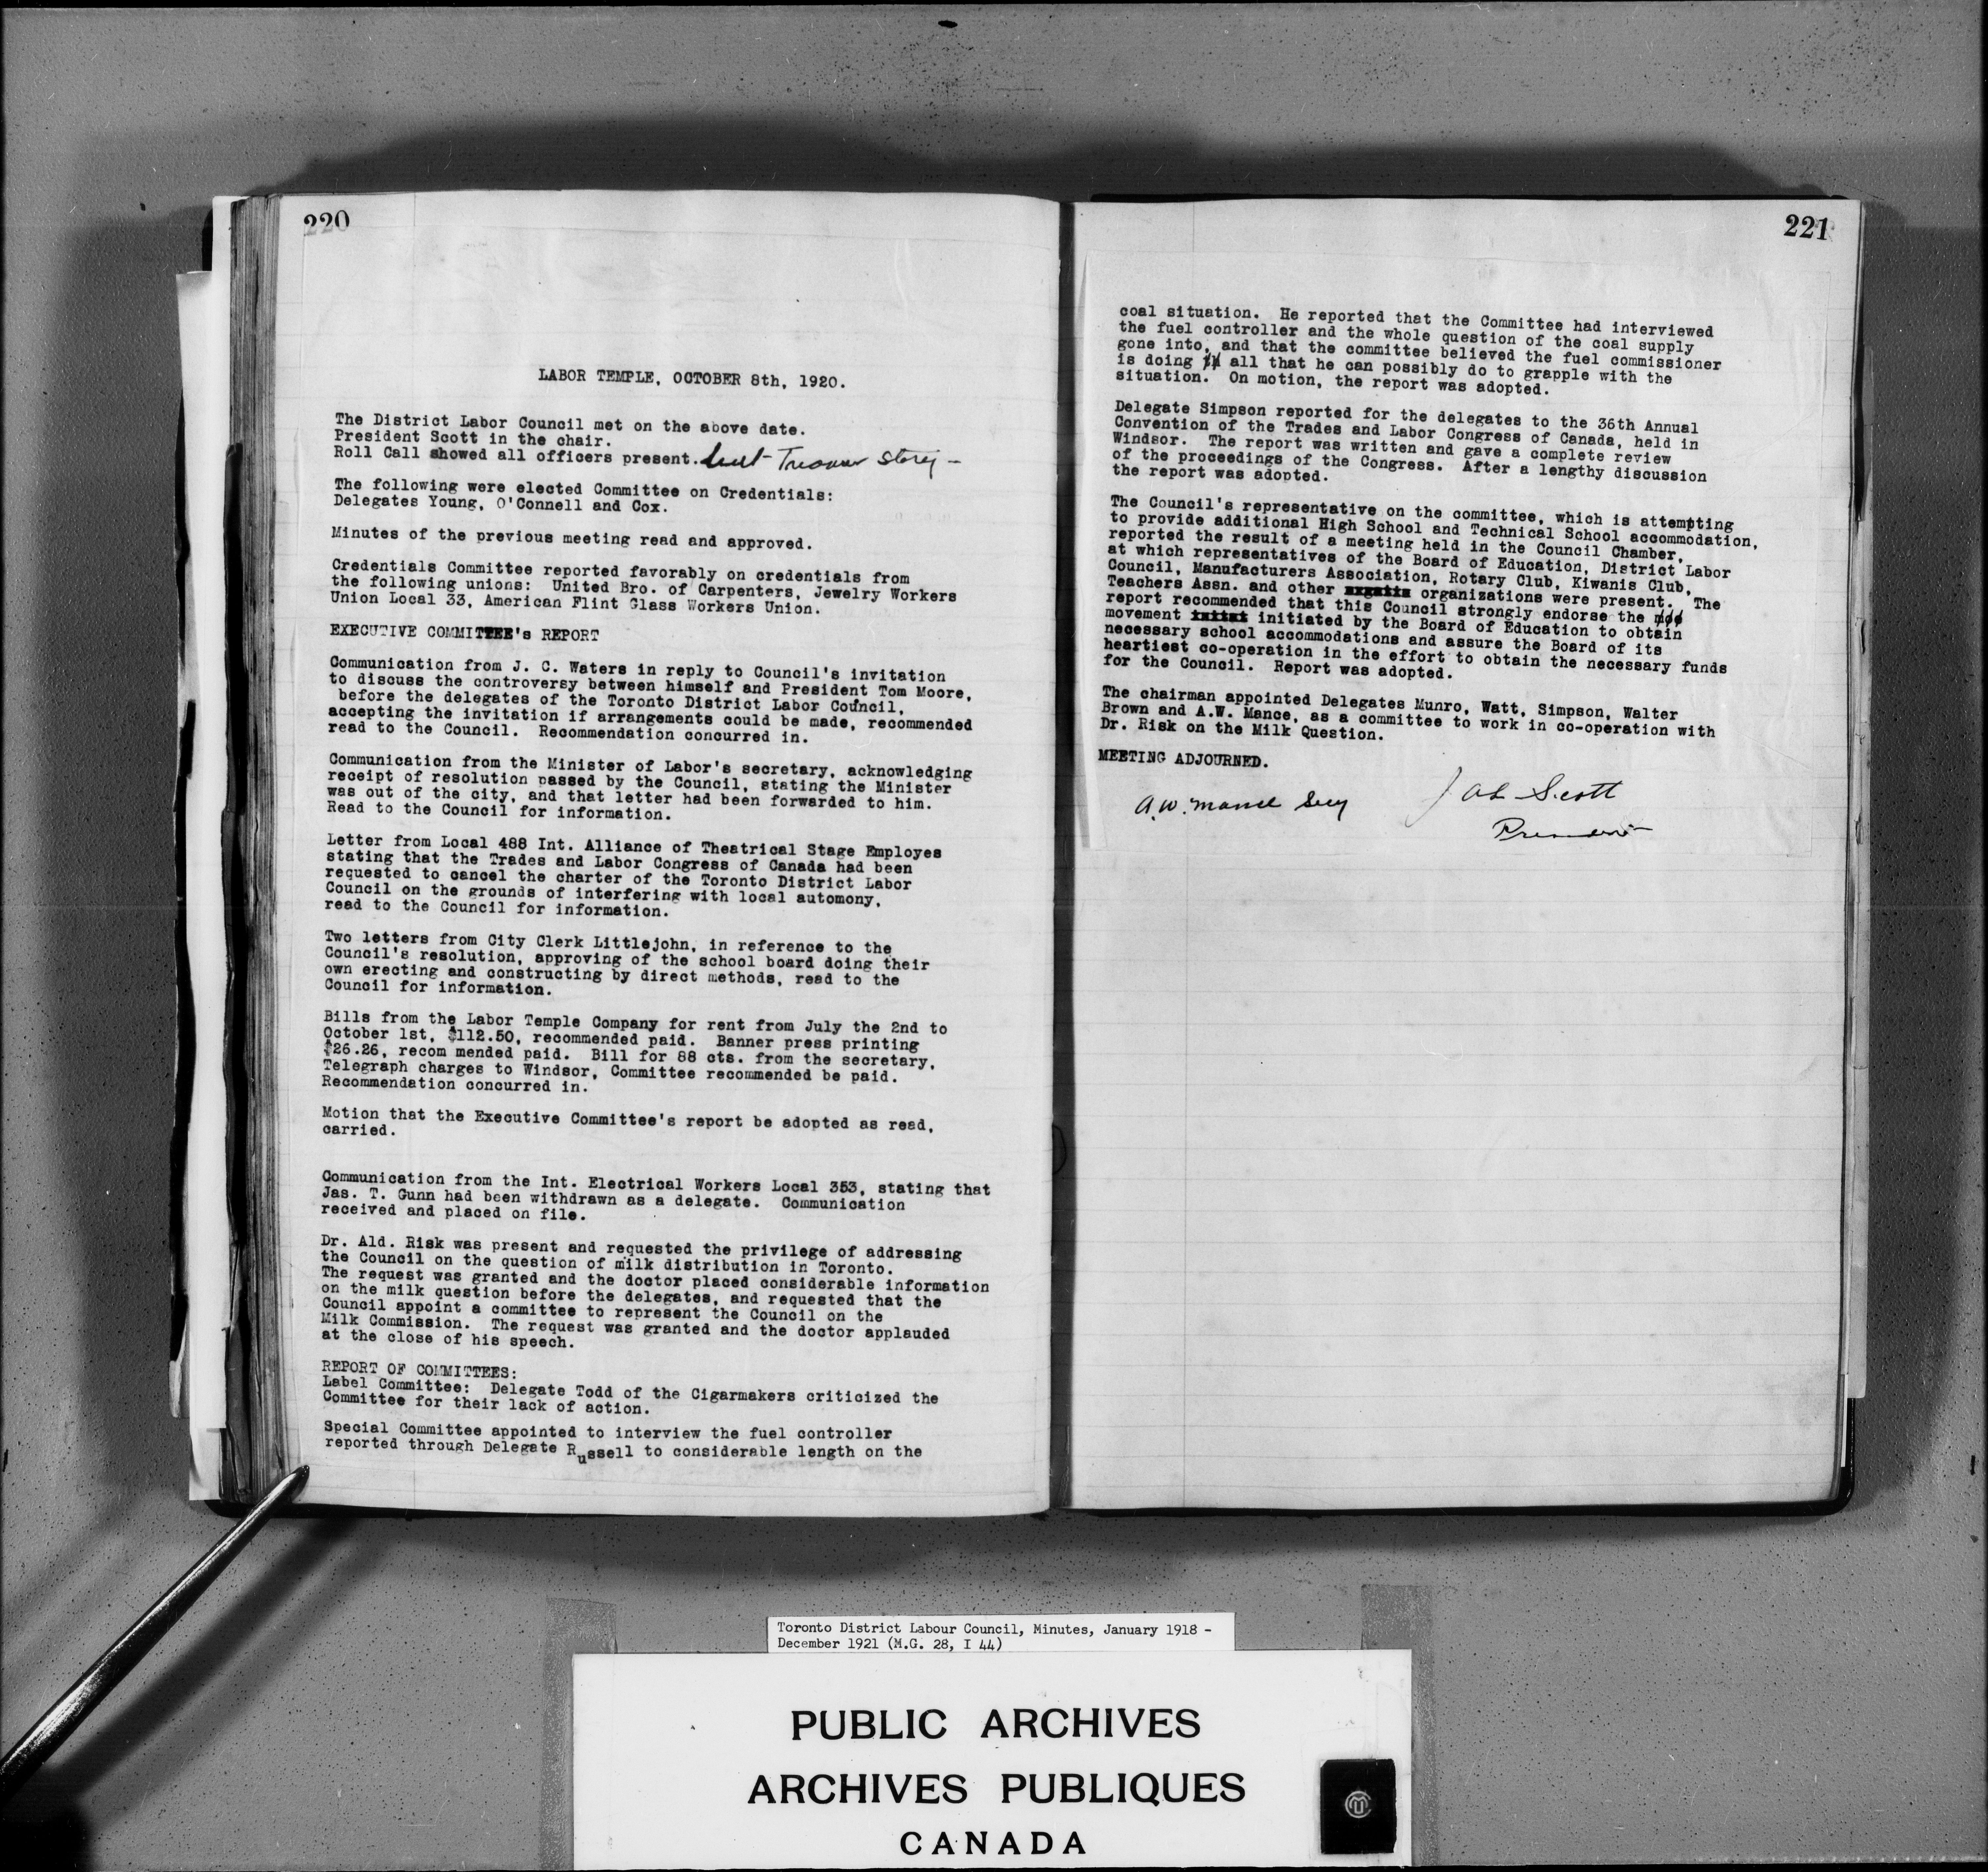 220
LABOR TEMPLE, OCTOBER 8th, 1920.
The District Labor Council met on the above date.
President Scott in the chair.
Roll Call showed all officers present. but Treasurer Storey -
The following were elected Committee on Credentials:
Delegates Young, O'Connell and Cox.
Minutes of the previous meeting read and approved.
Credentials Committee reported favorably on credentials from
the following unions: United Bro. of Carpenters, Jewelry Workers
Union Local 33, American Flint Glass Workers Union.
EXECUTIVE COMMITTEE's REPORT
Communication from J. C. Waters in reply to Council's invitation
to discuss the controversy between himself and President Tom Moore,
before the delegates of the Toronto District Labor Council,
accepting the invitation if arrangements could be made, recommended
read to the Council. Recommendation concurred in.
Communication from the Minister of Labor's secretary, acknowledging
receipt of resolution passed by the Council, stating the Minister
was out of the city, and that letter had been forwarded to him.
Read to the Council for information.
Letter from Local 488 Int. Alliance of Theatrical Stage Employes
stating that the Trades and Labor Congress of Canada had been
requested to cancel the charter of the Toronto District Labor
Council on the grounds of interfering with local automony,
read to the Council for information.
Two letters from City Clerk Littlejohn, in reference to the
Council's resolution, approving of the school board doing their
own erecting and constructing by direct methods, read to the
Council for information.
Bills from the Labor Temple Company for rent from July the 2nd to
October 1st, $112.50, recommended paid. Banner press printing
$26.26, recom mended paid. Bill for 88 cts. from the secretary,
Telegraph charges to Windsor, Committee recommended be paid.
Recommendation concurred in.
Motion that the Executive Committee's report be adopted as read,
carried.
Communication from the Int. Electrical Workers Local 353, stating that
Jas. T. Gunn had been withdrawn as a delegate. Communication
received and placed on file.
Dr. Ald. Risk was present and requested the privilege of addressing
the Council on the question of milk distribution in Toronto.
The request was granted and the doctor placed considerable information
on the milk question before the delegates, and requested that the
Council appoint a committee to represent the Council on the
Milk Commission. The request was granted and the doctor applauded
at the close of his speech.
REPORT OF COMMITTEES:
Label Committee: Delegate Todd of the Cigarmakers criticized the
Committee for their lack of action.
Special Committee appointed to interview the fuel controller
reported through Delegate Russell to considerable length on the
221
coal situation. He reported that the Committee had interviewed
the fuel controller and the whole question of the coal supply
gone into, and that the committee believed the fuel commissioner
is doing all that he can possibly do to grapple with the
situation. On motion, the report was adopted.
Delegate Simpson reported for the delegates to the 36th Annual
Convention of the Trades and Labor Congress of Canada, held in
Windsor. The report was written and gave a complete review
of the proceedings of the Congress. After a lengthy discussion
the report was adopted.
The Council's representative on the committee, which is attempting
to provide additional High School and Technical School accommodation,
reported the result of a meeting held in the Council Chamber,
at which representatives of the Board of Education, District Labor
Council, Manufacturers Association, Rotary Club, Kiwanis Club,
Teachers Assn. and other organizations were present. The
report recommended that this Council strongly endorse the
movement initiated by the Board of Education to obtain
necessary school accommodations and assure the Board of its
heartiest co-operation in the effort to obtain the necessary funds
for the Council. Report was adopted.
The chairman appointed Delegates Munro, Watt, Simpson, Walter
Brown and A.W. Mance, as a committee to work in co-operation with
Dr. Risk on the Milk Question.
MEETING ADJOURNED.
A.W. Mance Secy
Jas Scott
President
Toronto District Labour Council, Minutes, January 1918 -
December 1921 (M.G. 28, I 44)
PUBLIC ARCHIVES
ARCHIVES PUBLIQUES
CANADA